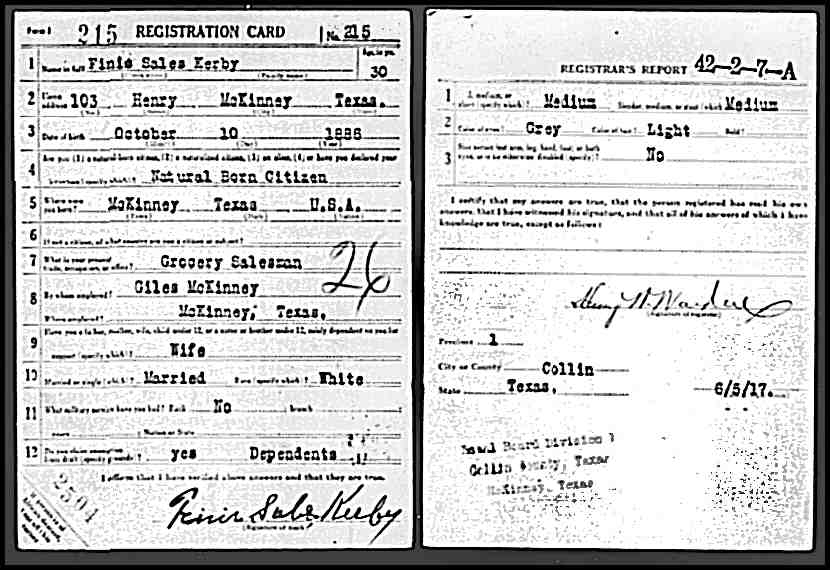 Form 1 215 REGISTRATION CARD No. 215
1 Name in full Finis Sales Kerby Age, in yrs. 30
(Given name) (Family name)
2 Home address 103 Henry McKinney Texas.
(No.) (Street) (City) (State)
3 Date of birth October 10 1886
(Month) (Day) (Year)
4 Are you (1) a natural-born citizen, (2) a naturalized citizen, (3) an alien, (4) or have you declared your
intention (specify which)? Natural Born Citizen
5 Where were you born? McKinney Texas U.S.A.
(Town) (State) (Nation)
6 If not a citizen, of what country are you a citizen or subject?
7 What is your present trade, occupation, or office? Grocery Salesman
26
8 By whom employed? Giles McKinney
Where employed? McKinney, Texas.
9 Have you a father, mother, wife, child under 12, or a sister or brother under 12, solely dependent on you for
support (specify which)? Wife
10 Married or single (which)? Married Race (specify which)? White
11 What military service have you had? Rank No branch
years Nation or State
12 Do you claim exemption from draft (specify grounds)? yes Dependents
I affirm that I have verified above answers and that they are true.
2504
Finis Sale Kerby
(Signature or mark)
REGISTRAR'S REPORT 42-2-7-A
1 Tall, medium, or short (specify which)? Medium Slender, medium, or stout (which)? Medium
2 Color of eyes? Grey Color of hair? Light Bald?
3 Has person lost arm, leg, hand, foot, or both
eyes, or is he otherwise disabled (specify)? No
I certify that my answers are true, that the person registered has read his own
answers, that I have witnessed his signature, and that all of his answers of which I have
knowledge are true, except as follows:
(Signature of registrar)
Precinct 1
City or County Collin
State Texas. 6/5/17.
Local Board Division 1
Collin County, Texas
McKinney, Texas